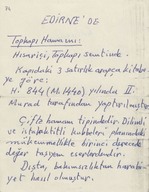 EDİRNE'DE
Topkapı Hamamı:
Hisariçi, Topkapı semtinde.
Kapıdaki 3 satırlık arapça kitabe
ye göre:
H. 844 (M. 1440) yılında II.
Murad tarafından yaptırılmıştır.
Çifte hamam tipindedir. Dilimli
ve istalaktitli kubbeleri planındaki
mükemmellikle birinci derecede
değer taşıyan eserlerdendir.
Dıştan, bakımsızlıktan harabi
yet hasıl olmuştur.